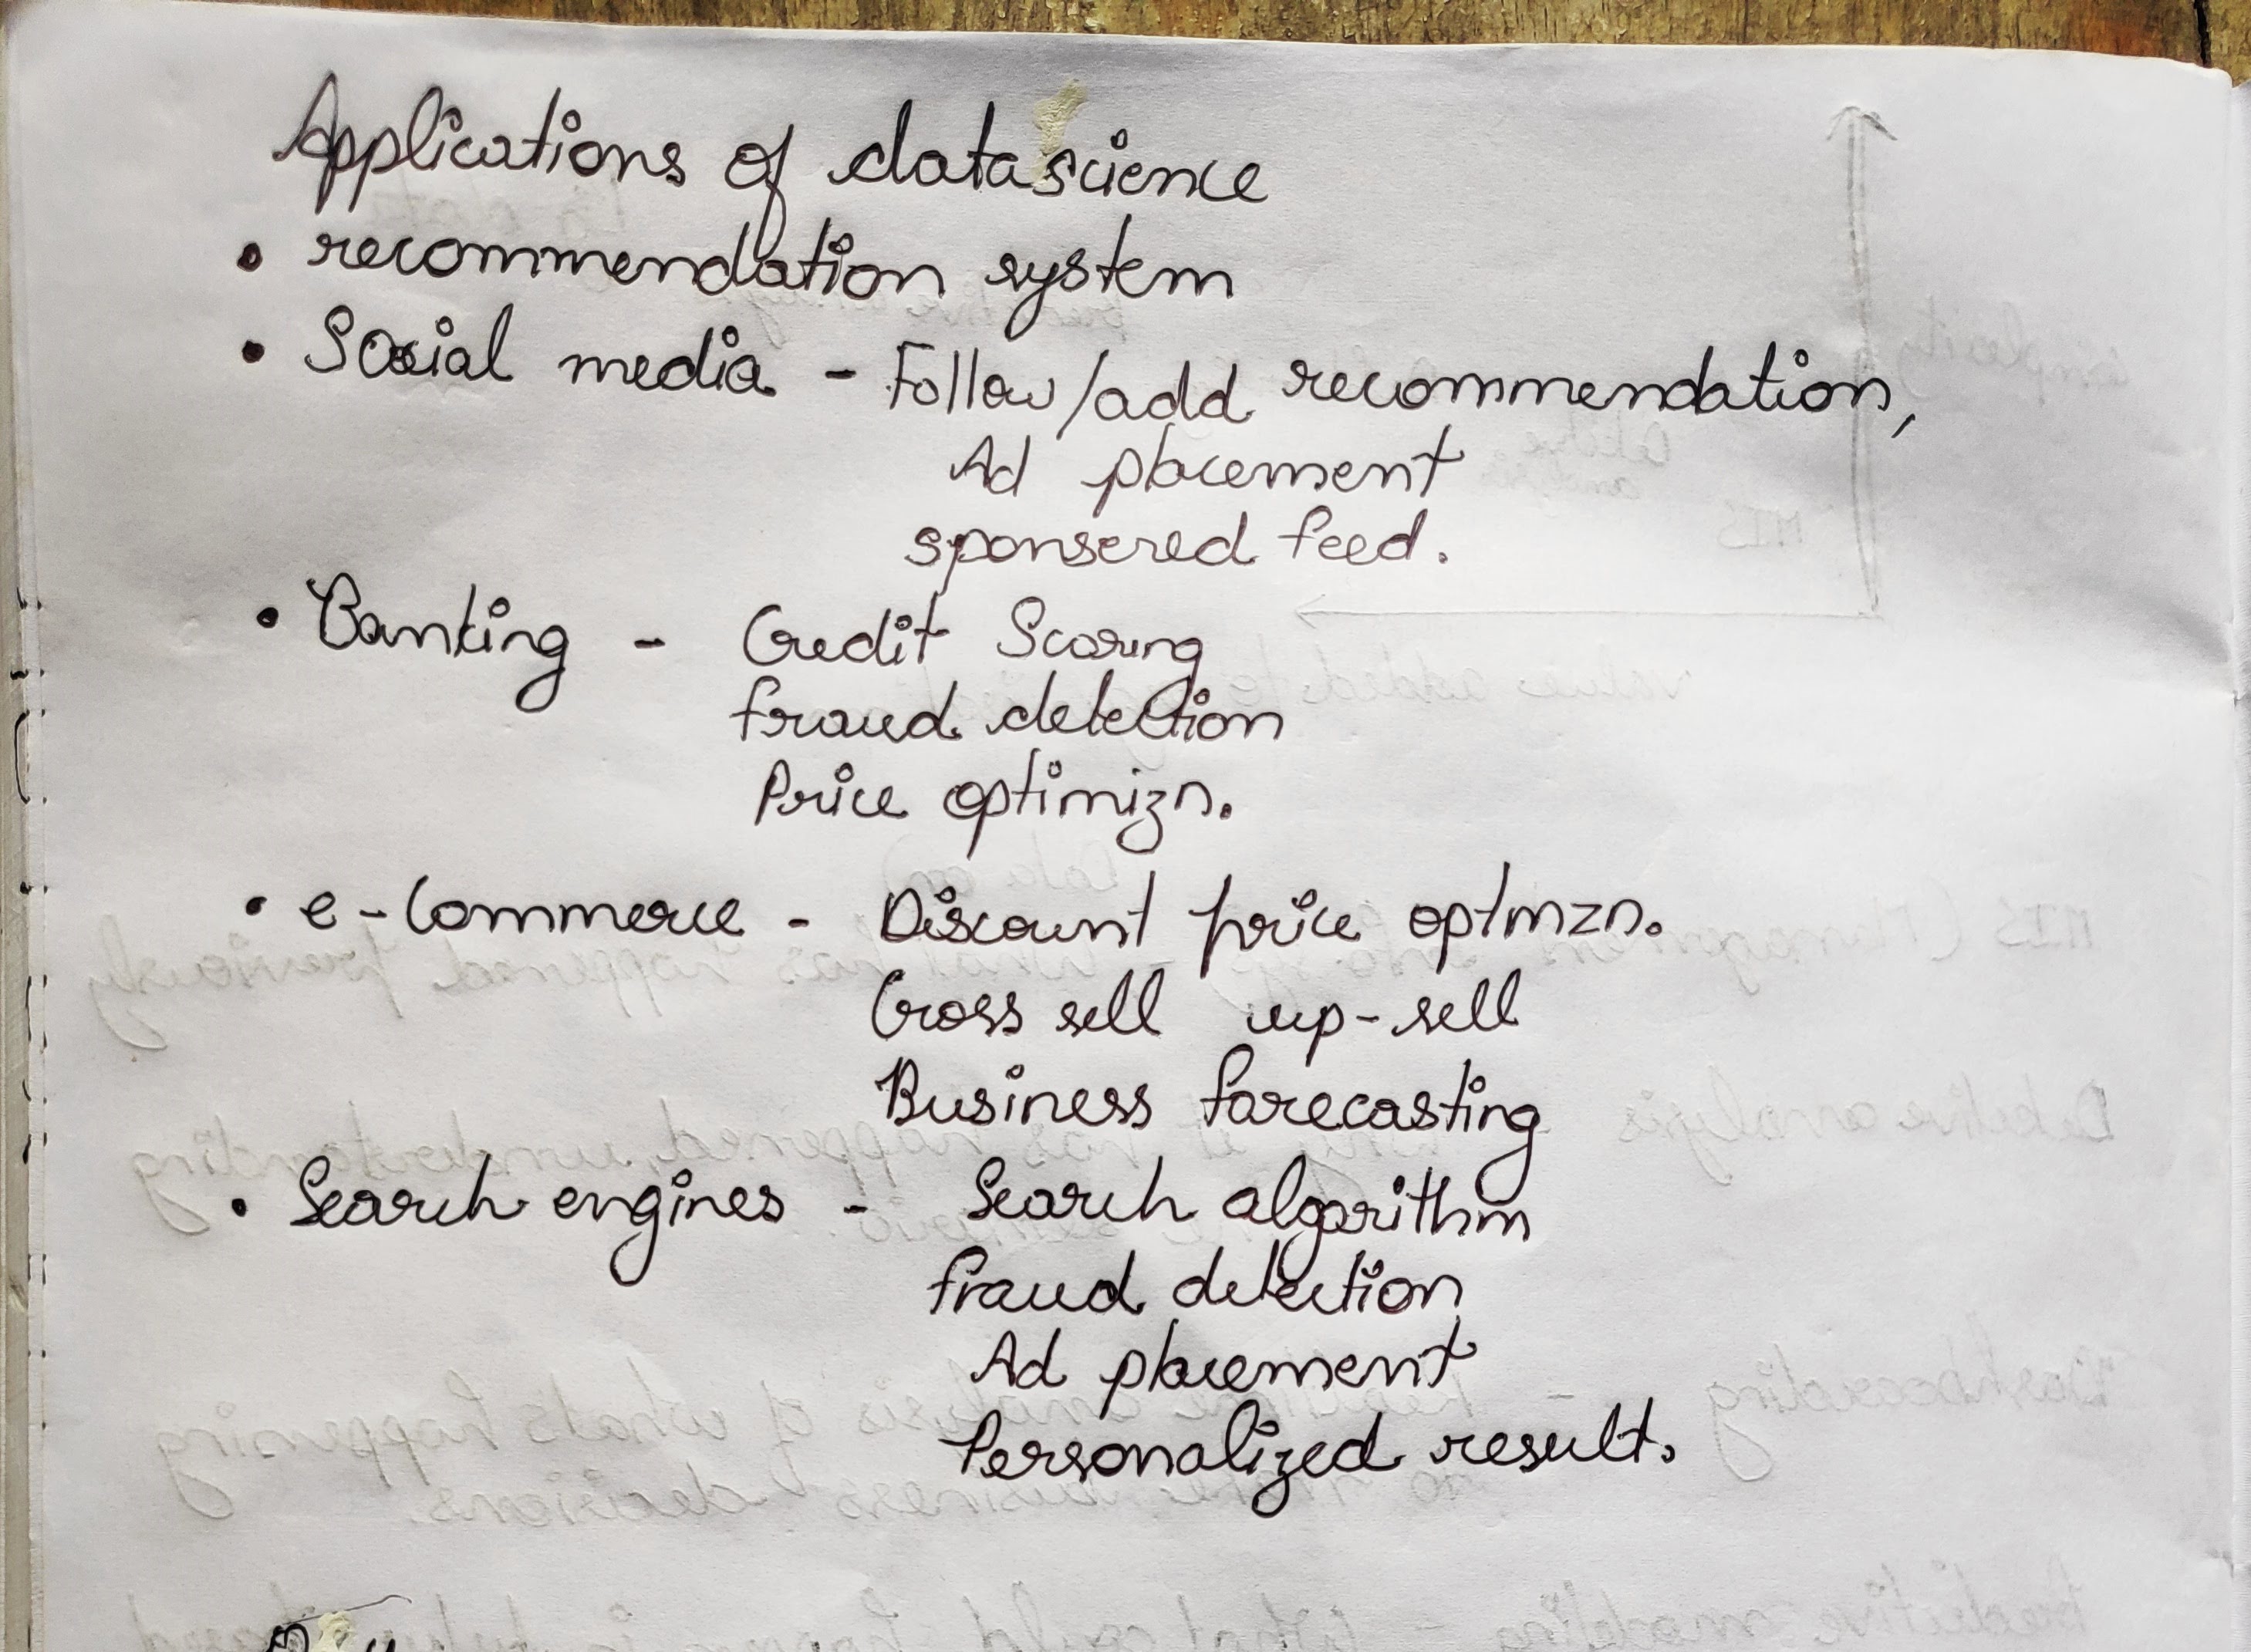 Applications of data science
• recommendation system
• Social media - Follow/add recommendation,
Ad placement
sponsered feed.
• Banking - Credit Scoring
fraud detection
Price optimizn.
• e-Commerce - Discount price optmzn.
Cross sell up-sell
Business forecasting
• Search engines - Search algorithm
fraud detection
Ad placement
Personalized result.